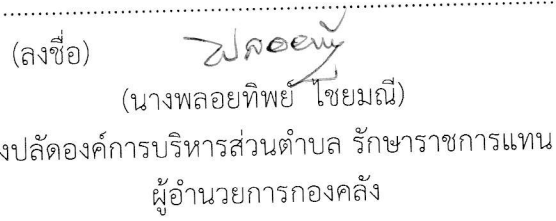 (ลงชื่อ) พลอยทิพย์
(นางพลอยทิพย์ ไชยมณี)
งปลัดองค์การบริหารส่วนตำบล รักษาราชการแทน
ผู้อำนวยการกองคลัง